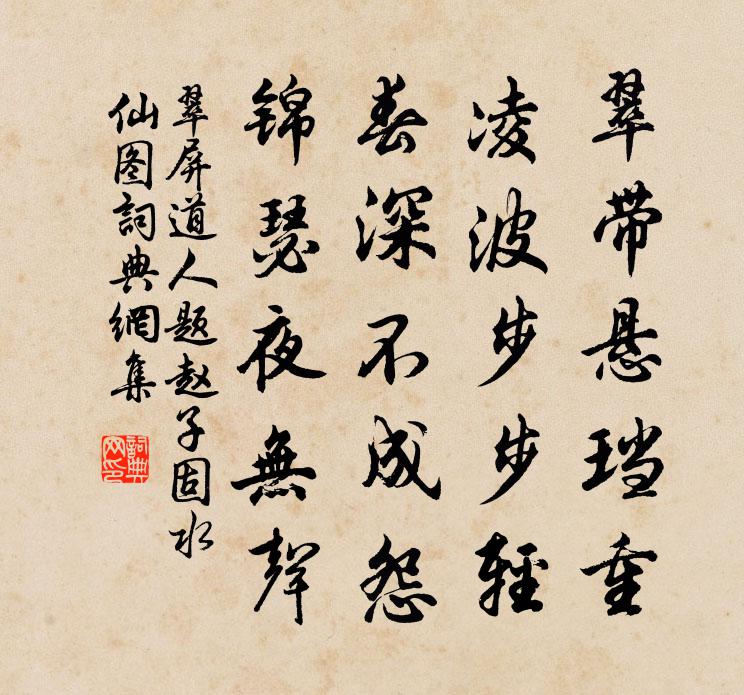 翠带悬珰重
凌波步步轻
春深不成怨
锦瑟夜無聲
翠屏道人题赵子固水
仙图詞典網集
詞典网印